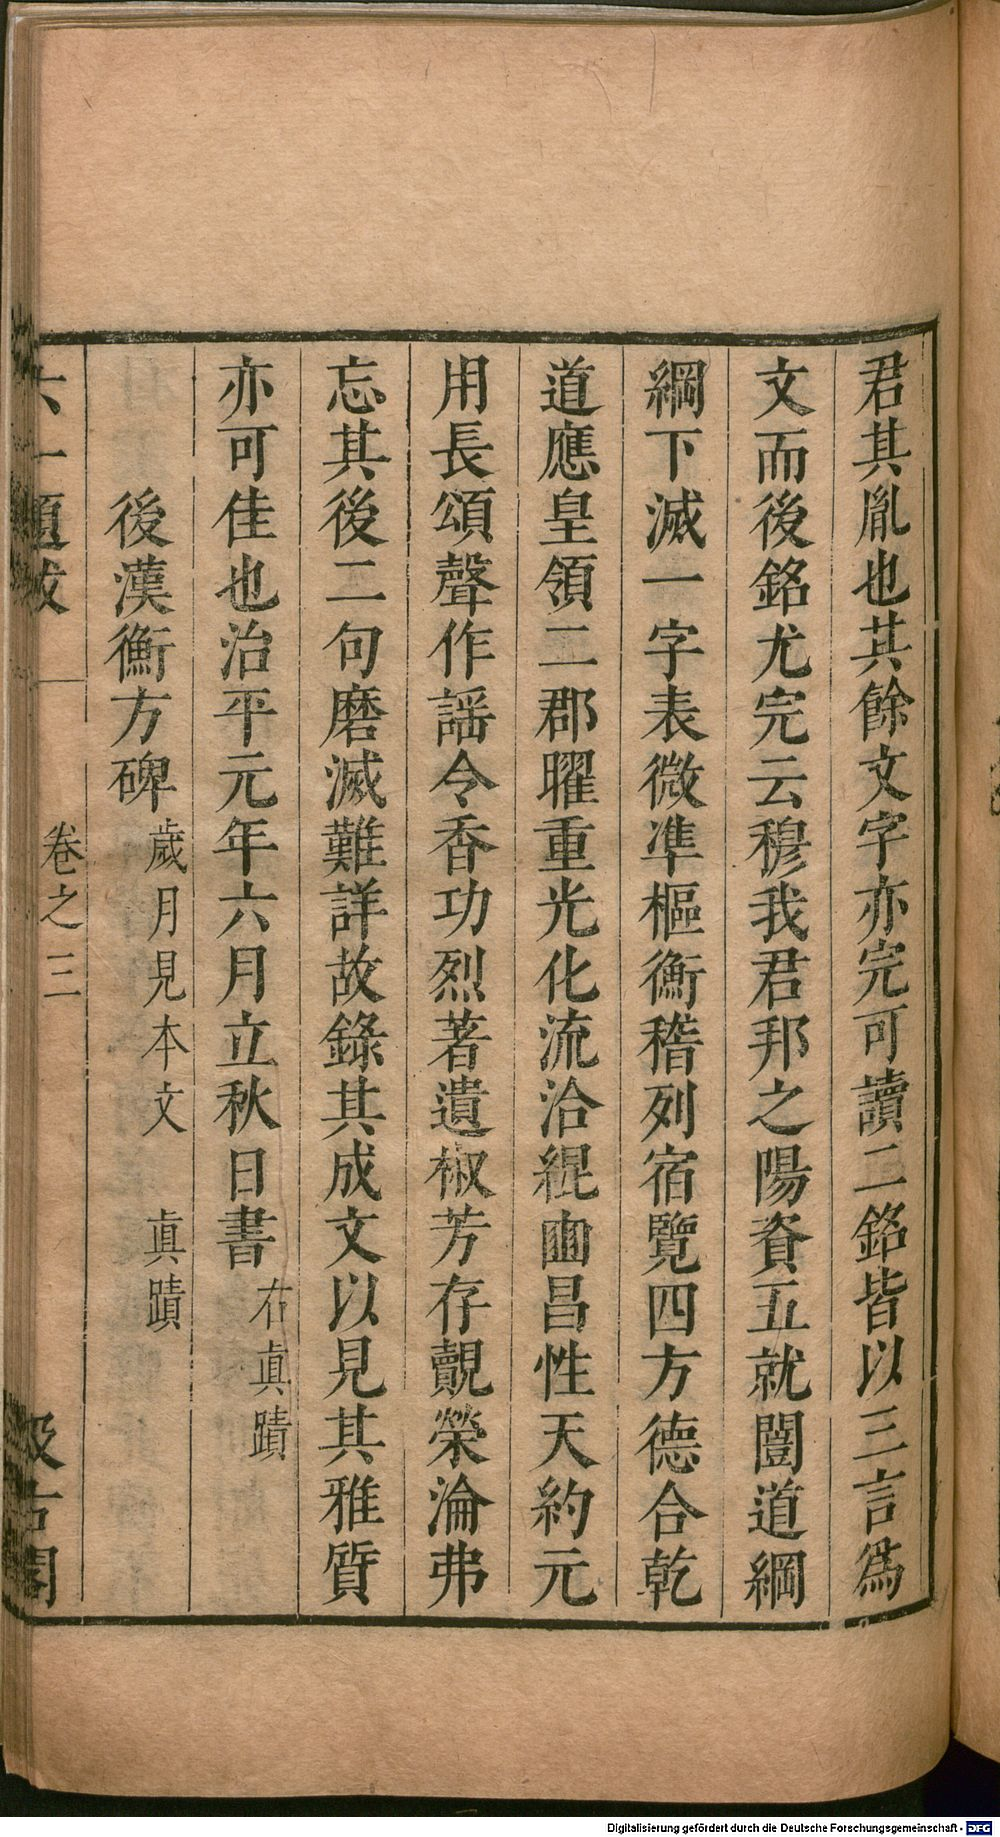 君其胤也其餘文字亦完可讀二銘皆以三言爲
文而後銘尤完云穆我君邦之陽資五就闓道綱
綱下滅一字表微準樞衡稽列宿覽四方德合乾
道應皇領二郡曜重光化流洽緄豳昌性天約元
用長頌聲作謡令香功烈著遺椒芳存覿榮淪弗
忘其後二句磨滅難詳故錄其成文以見其雅質
亦可佳也治平元年六月立秋日書 右眞蹟
後漢衡方碑 歲月見本文 眞蹟
六一題跋 卷之三 汲古閣
Digitalisierung gefördert durch die Deutsche Forschungsgemeinschaft - DFG